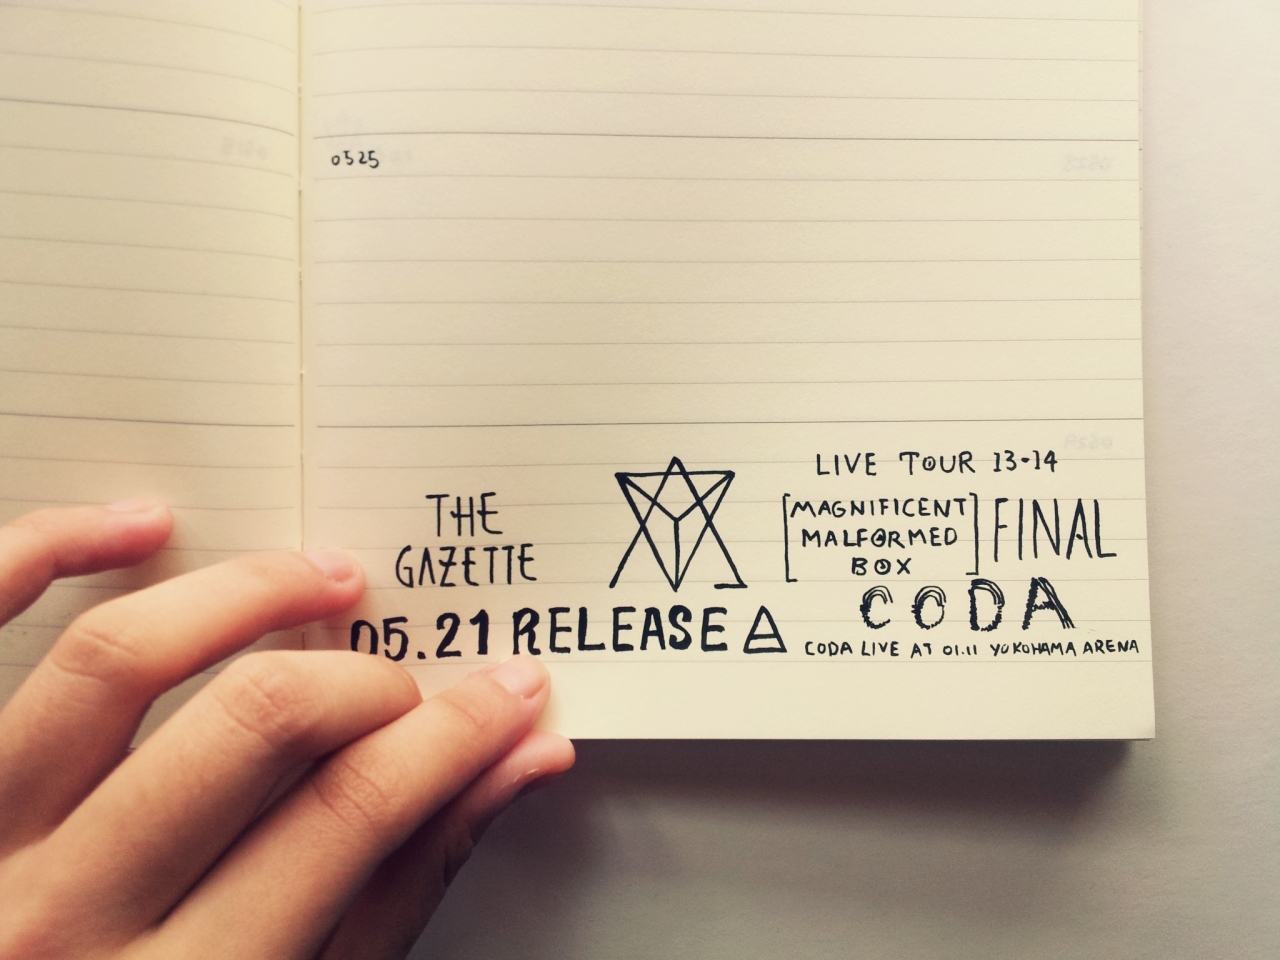 0525
THE
GAZETTE
05.21 RELEASE
LIVE TOUR 13-14
[MAGNIFICENT
MALFORMED
BOX] FINAL
CODA
CODA LIVE AT 01.11 YOKOHAMA ARENA